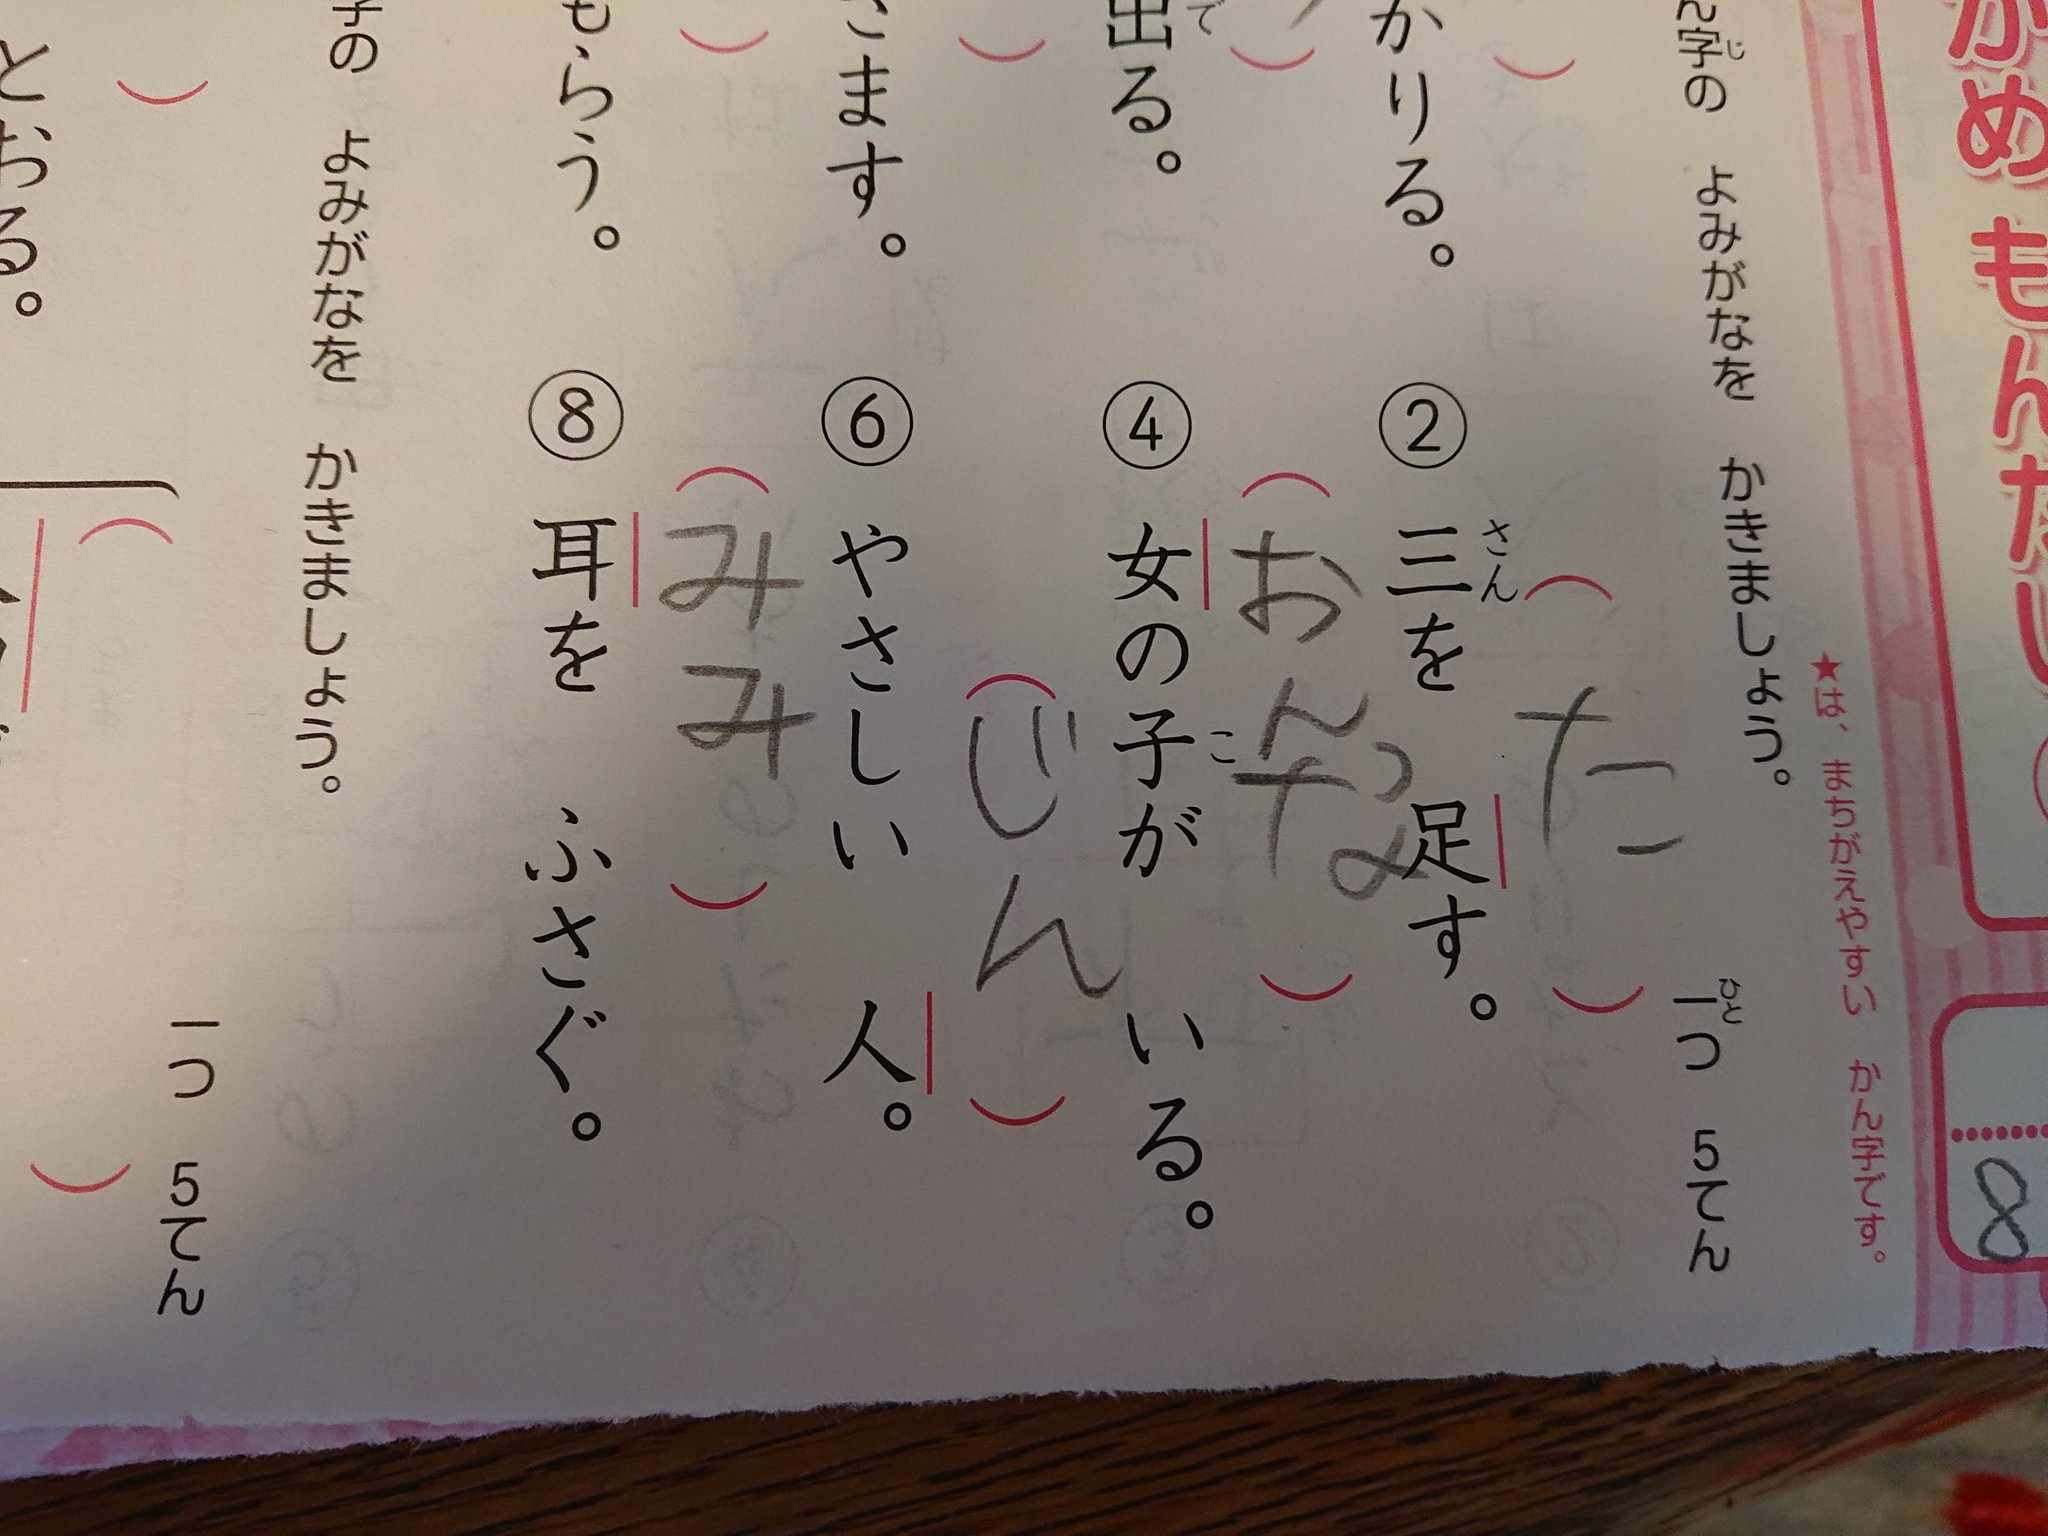 かめもんだい
8
★は、まちがえやすい かん字です。
ん字の よみがなを かきましょう。
一つ 5てん
ひと
かりる。
② 三を 足す。
さん
た
出る。
で
④ 女の子が いる。
こ
おんな
こます。
⑥ やさしい 人。
じん
もらう。
⑧ 耳を ふさぐ。
みみ
字の よみがなを かきましょう。
一つ 5てん
とおる。